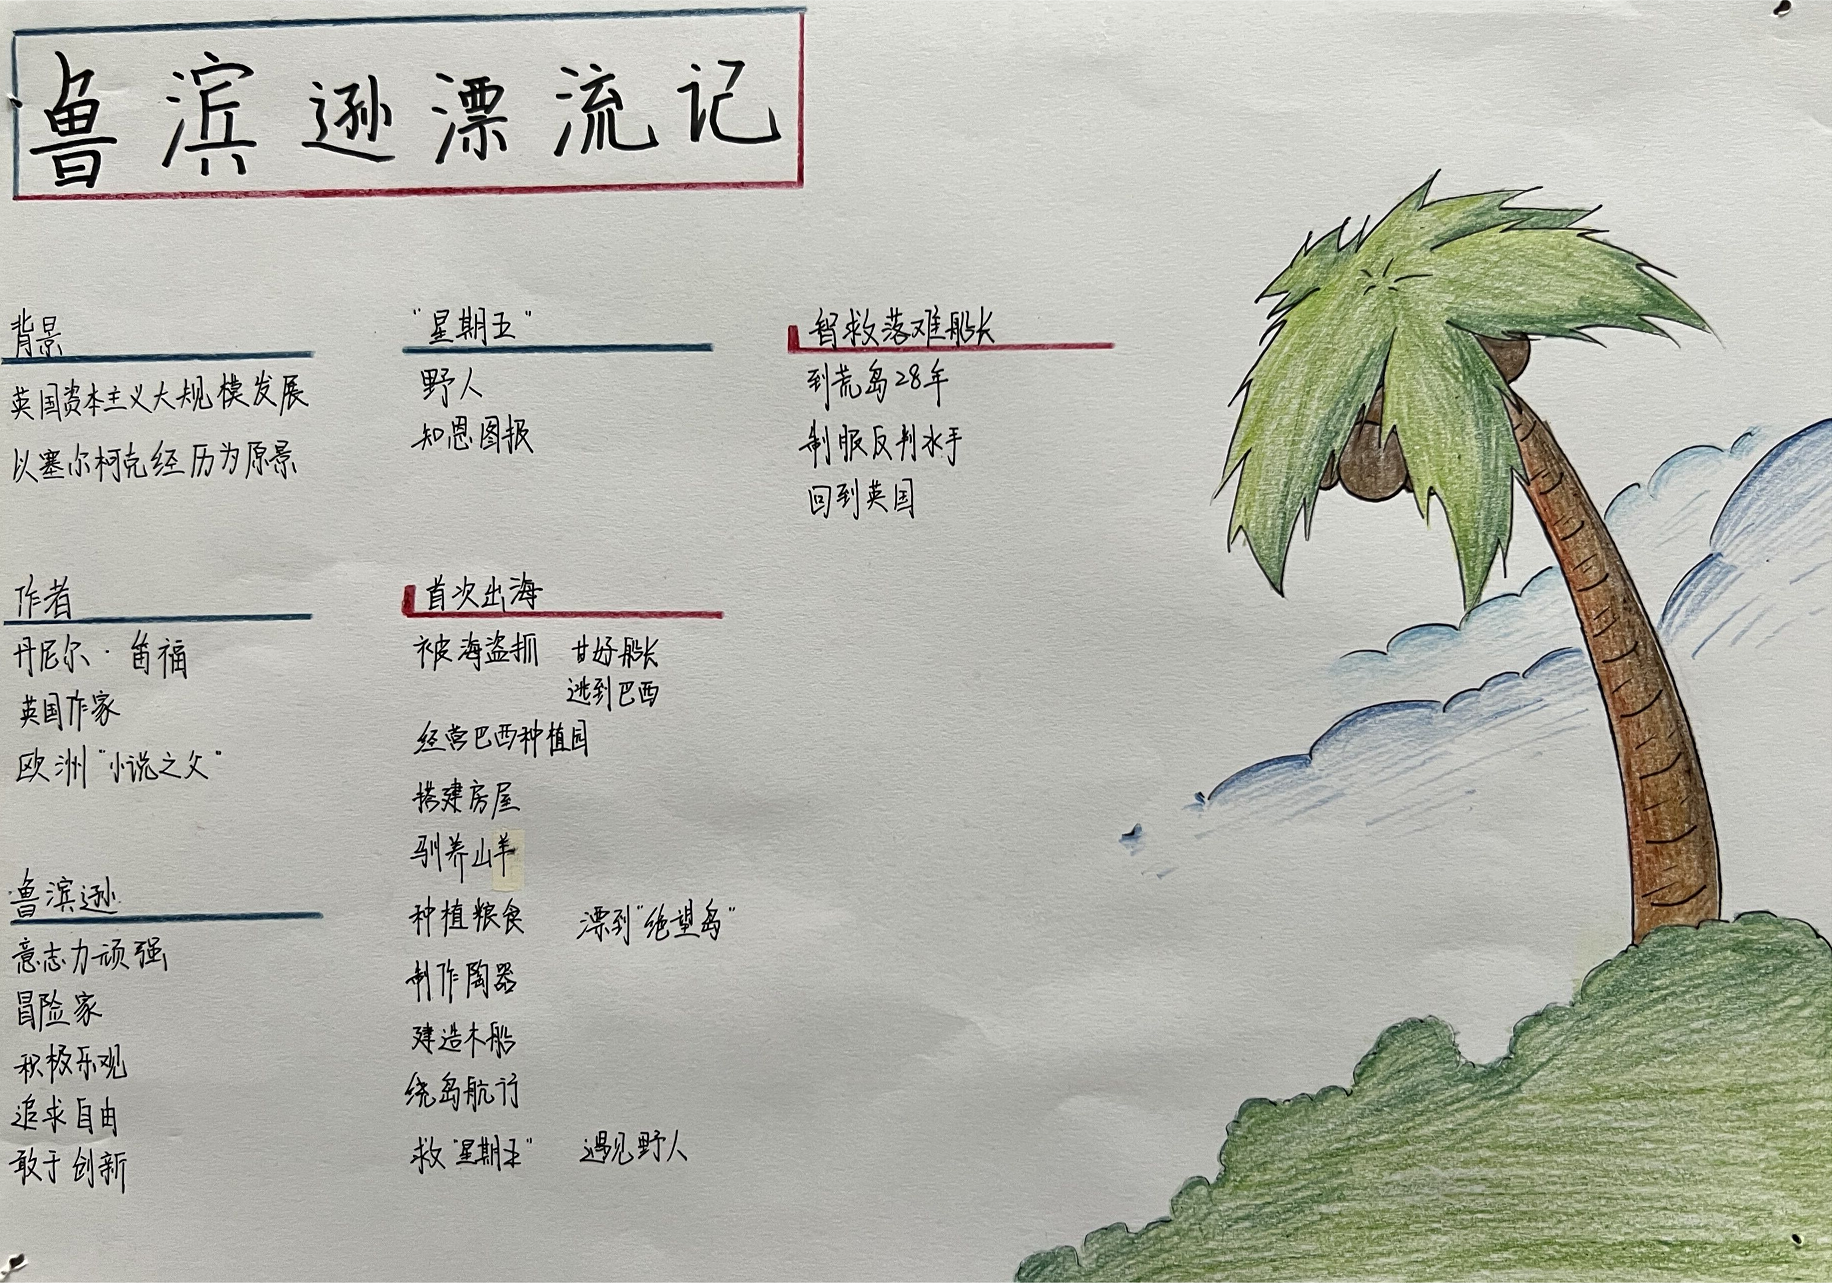 鲁滨逊漂流记
背景
英国资本主义大规模发展
以塞尔柯克经历为原景
作者
丹尼尔·笛福
英国作家
欧洲"小说之父"
鲁滨逊
意志力顽强
冒险家
积极乐观
追求自由
敢于创新
"星期五"
野人
知恩图报
首次出海
被海盗抓 甘好船长
逃到巴西
经营巴西种植园
搭建房屋
驯养山羊
种植粮食 漂到"绝望岛"
制作陶器
建造木船
绕岛航行
救"星期五" 遇见野人
智救落难船长
到荒岛28年
制服反判水手
回到英国